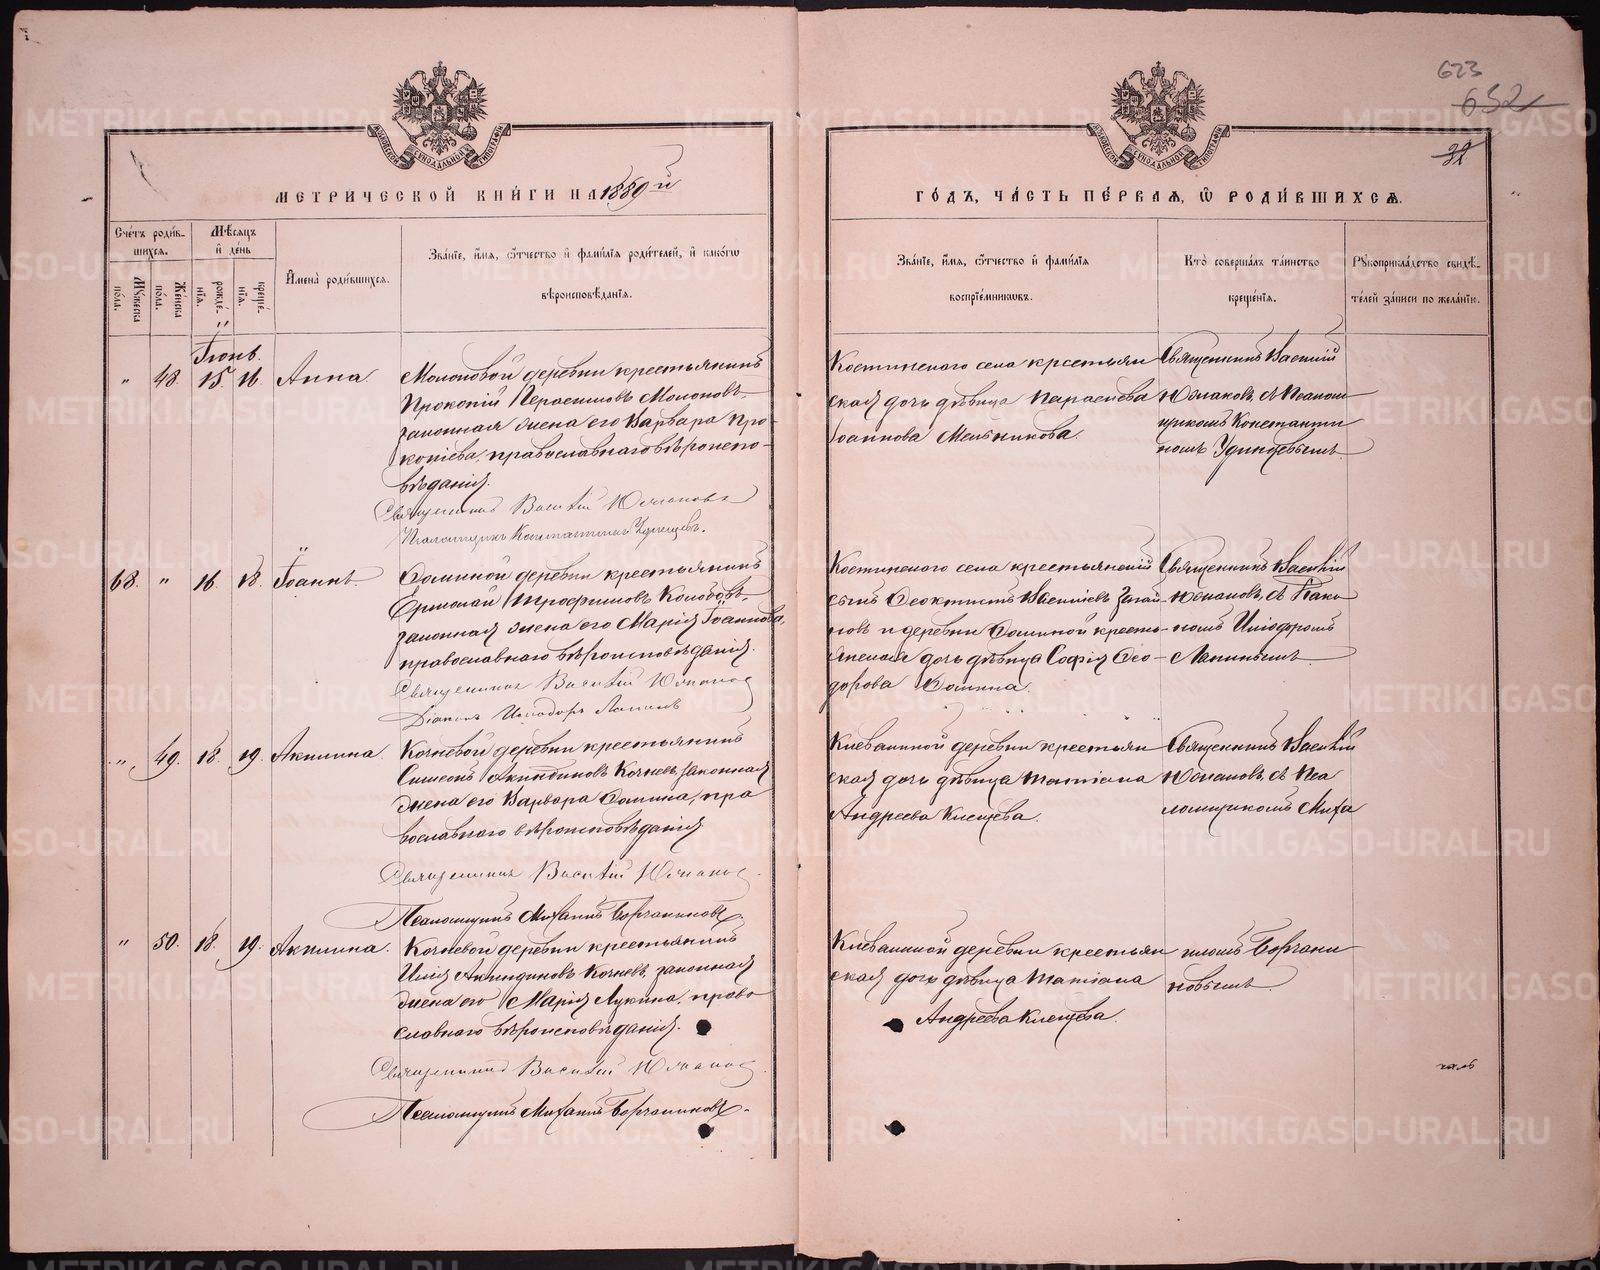 623
632
32
МЕТРИЧЕСКОЙ КНИГИ НА 1889 й
ГОДЪ, ЧАСТЬ ПЕРВАЯ, Ѡ РОДИВШИХСЯ.
Счетъ родив-
шихся.
Мужеска
пола.
Женска
пола.
Мѣсяцъ
и день
рожде-
нія.
креще-
нія.
Имена родившихся.
Званіе, имя, отчество и фамилія родителей, и какого
вѣроисповѣданія.
Званіе, имя, отчество и фамилія
воспріемниковъ.
Кто совершалъ таинство
крещенія.
Рукоприкладство свидѣ-
телей записи по желанію.
Іюнь.
" 48. 15 16 Анна.
деревни крестьянинъ
Прокопій Герасимовъ
законная жена его Варвара Про-
копіева, православнаго вѣроиспо-
вѣданія.
Священникъ Василій Юшановъ
Псаломщикъ Константинъ Удинцевъ.
Костинскаго села крестьян
ская дочь дѣвица Параскева
Іоаннова Мельникова.
Священникъ Василій
Юшановъ, съ Псалом
щикомъ Константи
номъ Удинцевымъ
68. " 16 18. Іоаннъ.
Ѳоминой деревни крестьянинъ
Ермолай Трофимовъ
законная жена его Марія Іоаннова,
православнаго вѣроисповѣданія.
Священникъ Василій Юшановъ
Діаконъ Исидоръ Лапинъ
Костинскаго села крестьянскій
сынъ Ѳеоктистъ Василіевъ
новъ и деревни Ѳоминой кресть-
янская дочь дѣвица Софія Ѳео-
дорова Ѳомина.
Священникъ Василій
Юшановъ, съ Діако
номъ Исидоромъ
Лапинымъ
" 49. 18. 19. Акилина.
Кочневой деревни крестьянинъ
Симеонъ Акиндиновъ Кочневъ, законная
жена его Варвара Ѳомина, пра
вославнаго вѣроисповѣданія
Священникъ Василій Юшановъ.
Псаломщикъ Михаилъ Борчаниновъ.
деревни крестьян
ская дочь дѣвица Татіана
Андреева Клещева.
Священникъ Василій
Юшановъ, съ Пса
ломщикомъ Миха
" 50. 18. 19. Акилина.
Кочневой деревни крестьянинъ
Илія Акиндиновъ Кочневъ, законная
жена его Марія Лукина, право
славнаго вѣроисповѣданія.
Священникъ Василій Юшановъ
Псаломщикъ Михаилъ Борчаниновъ.
деревни крестьян
ская дочь дѣвица Татіана
Андреева Клещева.
иломъ Борчани
новымъ
METRIKI.GASO-URAL.RU